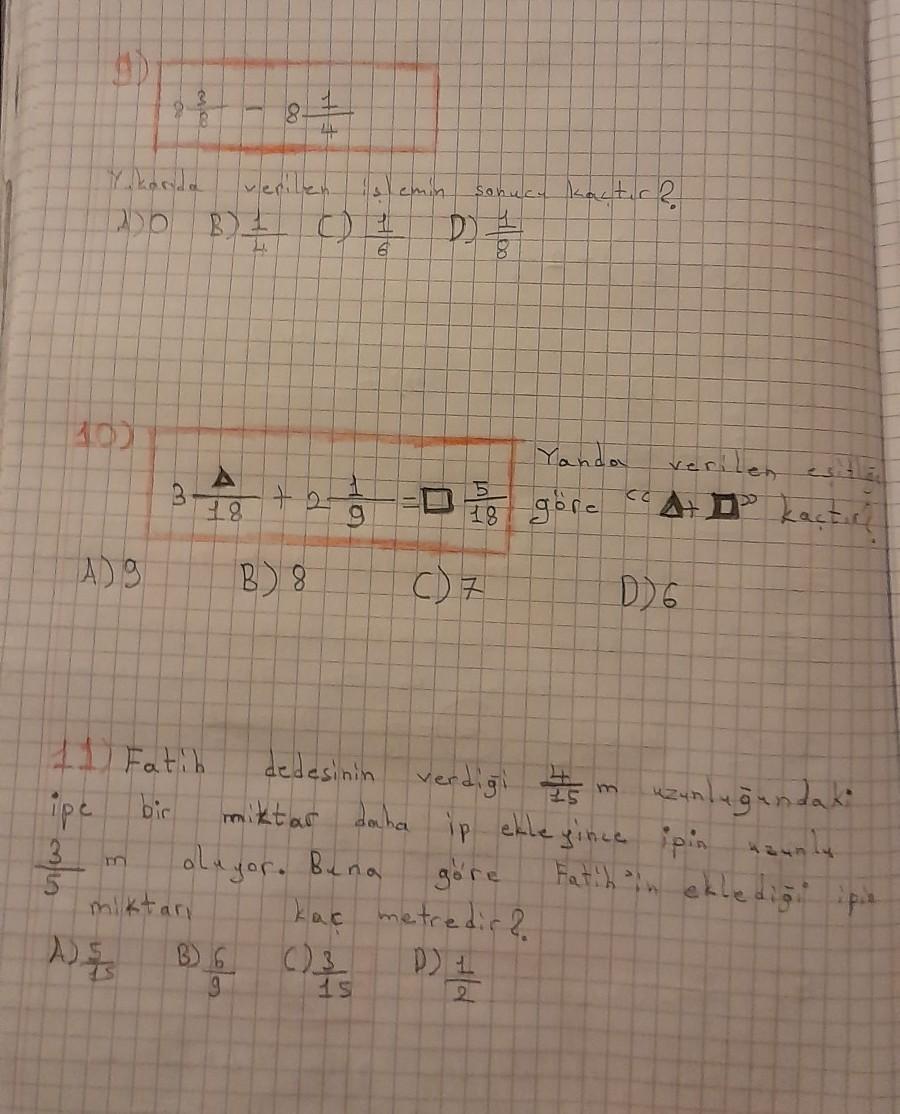 9)
8 3/8 - 8 1/4
Yukarıda verilen işlemin sonucu kaçtır?
A) 0 B) 1/4 C) 1/6 D) 1/8
10)
3 ▲/18 + 2 1/9 = □ 5/18
Yanda verilen
göre "▲+□" kaçtır?
A) 9 B) 8 C) 7 D) 6
11) Fatih dedesinin verdiği 4/15 m uzunluğundaki
ipe bir miktar daha ip ekleyince ipin uzunlu
3/5 m oluyor. Buna göre Fatih'in eklediği ipin
miktarı kaç metredir?
A) 5/15 B) 6/9 C) 3/15 D) 1/2